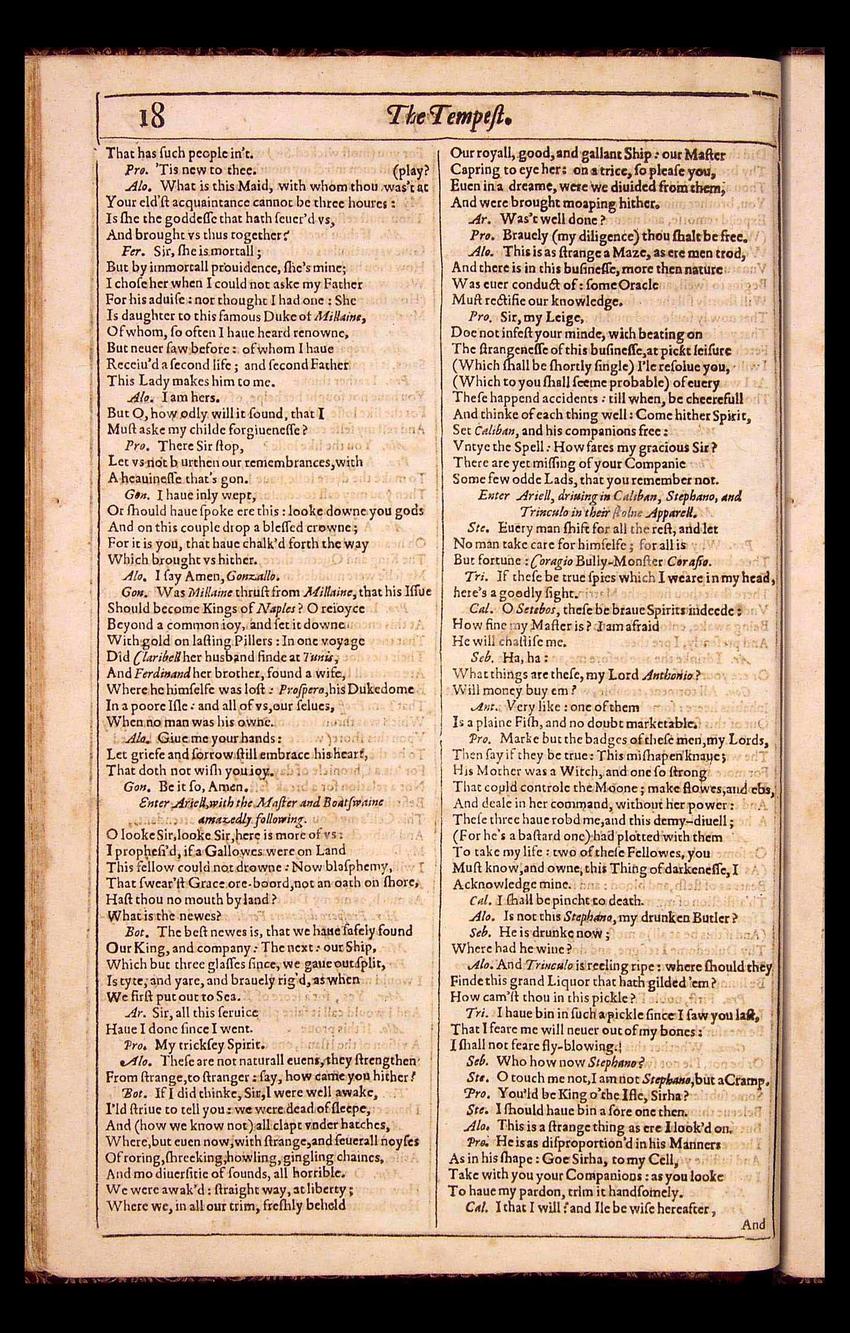 18
The Tempest.
That has such people in't.
Pro. 'Tis new to thee. (play?
Alo. What is this Maid, with whom thou was't at
Your eld'st acquaintance cannot be three houres :
Is she the goddesse that hath seuer'd vs,
And brought vs thus together?
Fer. Sir, she is mortall ;
But by immortall prouidence, she's mine;
I chose her when I could not aske my Father
For his aduise : nor thought I had one : She
Is daughter to this famous Duke of Millaine,
Of whom, so often I haue heard renowne,
But neuer saw before : of whom I haue
Receiu'd a second life ; and second Father
This Lady makes him to me.
Alo. I am hers.
But O, how odly will it sound, that I
Must aske my childe forgiuenesse ?
Pro. There Sir stop,
Let vs not burthen our remembrances, with
A heauinesse that's gon.
Gon. I haue inly wept,
Or should haue spoke ere this : looke downe you gods
And on this couple drop a blessed crowne ;
For it is you, that haue chalk'd forth the way
Which brought vs hither.
Alo. I say Amen, Gonzallo.
Gon. Was Millaine thrust from Millaine, that his Issue
Should become Kings of Naples ? O reioyce
Beyond a common ioy, and set it downe
With gold on lasting Pillers : In one voyage
Did Claribell her husband finde at Tunis,
And Ferdinand her brother, found a wife,
Where he himselfe was lost : Prospero, his Dukedome
In a poore Isle : and all of vs, our selues,
When no man was his owne.
Alo. Giue me your hands :
Let griefe and sorrow still embrace his heart,
That doth not wish you ioy.
Gon. Be it so, Amen.
Enter Ariell, with the Master and Boatswaine
amazedly following.
O looke Sir, looke Sir, here is more of vs :
I prophesi'd, if a Gallowes were on Land
This fellow could not drowne : Now blasphemy,
That swear'st Grace ore-boord, not an oath on shore,
Hast thou no mouth by land ?
What is the newes?
Bot. The best newes is, that we haue safely found
Our King, and company : The next : our Ship,
Which but three glasses since, we gaue out split,
Is tyte, and yare, and brauely rig'd, as when
We first put out to Sea.
Ar. Sir, all this seruice
Haue I done since I went.
Pro. My tricksey Spirit.
Alo. These are not naturall euens, they strengthen
From strange, to stranger : say, how came you hither ?
Bot. If I did thinke, Sir, I were well awake,
I'ld striue to tell you : we were dead of sleepe,
And (how we know not) all clapt vnder hatches,
Where, but euen now, with strange, and seuerall noyses
Of roring, shreeking, howling, gingling chaines,
And mo diuersitie of sounds, all horrible.
We were awak'd : straight way, at liberty ;
Where we, in all our trim, freshly beheld
Our royall, good, and gallant Ship : our Master
Capring to eye her : on a trice, so please you,
Euen in a dreame, were we diuided from them,
And were brought moaping hither.
Ar. Was't well done ?
Pro. Brauely (my diligence) thou shalt be free.
Alo. This is as strange a Maze, as ere men trod,
And there is in this businesse, more then nature
Was euer conduct of : some Oracle
Must rectifie our knowledge.
Pro. Sir, my Leige,
Doe not infest your minde, with beating on
The strangenesse of this businesse, at pickt leisure
(Which shall be shortly single) I'le resolue you,
(Which to you shall seeme probable) of euery
These happend accidents : till when, be cheerefull
And thinke of each thing well : Come hither Spirit,
Set Caliban, and his companions free :
Vntye the Spell : How fares my gracious Sir ?
There are yet missing of your Companie
Some few odde Lads, that you remember not.
Enter Ariell, driuing in Caliban, Stephano, and
Trinculo in their stolne Apparell.
Ste. Euery man shift for all the rest, and let
No man take care for himselfe ; for all is
But fortune : Coragio Bully-Monster Corasio.
Tri. If these be true spies which I weare in my head,
here's a goodly sight.
Cal. O Setebos, these be braue Spirits indeede :
How fine my Master is ? I am afraid
He will chastise me.
Seb. Ha, ha :
What things are these, my Lord Anthonio ?
Will money buy em ?
Ant. Very like : one of them
Is a plaine Fish, and no doubt marketable.
Pro. Marke but the badges of these men, my Lords,
Then say if they be true : This mishapen knaue ;
His Mother was a Witch, and one so strong
That could controle the Moone ; make flowes, and ebs,
And deale in her command, without her power :
These three haue robd me, and this demy-diuell ;
(For he's a bastard one) had plotted with them
To take my life : two of these Fellowes, you
Must know, and owne, this Thing of darkenesse, I
Acknowledge mine.
Cal. I shall be pincht to death.
Alo. Is not this Stephano, my drunken Butler ?
Seb. He is drunke now ;
Where had he wine ?
Alo. And Trinculo is reeling ripe : where should they
Finde this grand Liquor that hath gilded 'em ?
How cam'st thou in this pickle ?
Tri. I haue bin in such a pickle since I saw you last,
That I feare me will neuer out of my bones :
I shall not feare fly-blowing.
Seb. Who how now Stephano ?
Ste. O touch me not, I am not Stephano, but a Cramp.
Pro. You'ld be King o'the Isle, Sirha ?
Ste. I should haue bin a sore one then.
Alo. This is a strange thing as ere I look'd on.
Pro. He is as disproportion'd in his Manners
As in his shape : Goe Sirha, to my Cell,
Take with you your Companions : as you looke
To haue my pardon, trim it handsomely.
Cal. I that I will : and Ile be wise hereafter,
And